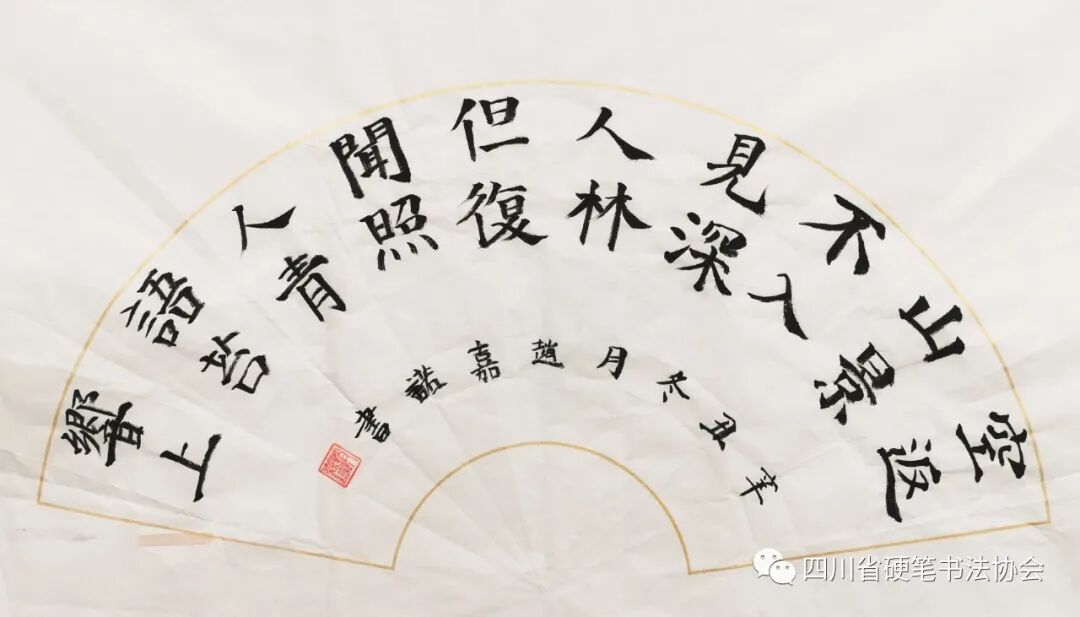 空山不見人但聞人語響
返景入深林復照青苔上
辛丑冬月趙嘉諾書
四川省硬笔书法协会